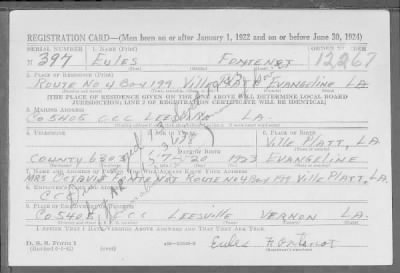 REGISTRATION CARD—(Men born on or after January 1, 1922 and on or before June 30, 1924)
SERIAL NUMBER 1. NAME (Print) ORDER NUMBER
N 397 EULES FONTENOT 12267
2. PLACE OF RESIDENCE (Print)
ROUTE NO 4 BOX 199 VILLE PLATTE EVANGELINE LA
[THE PLACE OF RESIDENCE GIVEN ON THE LINE ABOVE WILL DETERMINE LOCAL BOARD
JURISDICTION; LINE 2 OF REGISTRATION CERTIFICATE WILL BE IDENTICAL]
3. MAILING ADDRESS
CO 5405 CCC LEESVILLE LA.
4. TELEPHONE PLACE OF BIRTH
VILLE PLATT, LA
DATE OF BIRTH
COUNTY 1923 EVANGELINE
7. NAME AND ADDRESS OF PERSON WHO WILL ALWAYS KNOW YOUR ADDRESS
MRS OCTAVIE FONTENOT ROUTE NO 4 BOX 199 VILLE PLATT, LA
8. EMPLOYER'S NAME AND ADDRESS
CCC
9. PLACE OF EMPLOYMENT OR BUSINESS
CO. 5405 CCC LEESVILLE VERNON LA.
I AFFIRM THAT I HAVE VERIFIED ABOVE ANSWERS AND THAT THEY ARE TRUE.
D. S. S. Form 1
(Revised 6-9-41) (over) Eules Fontenot